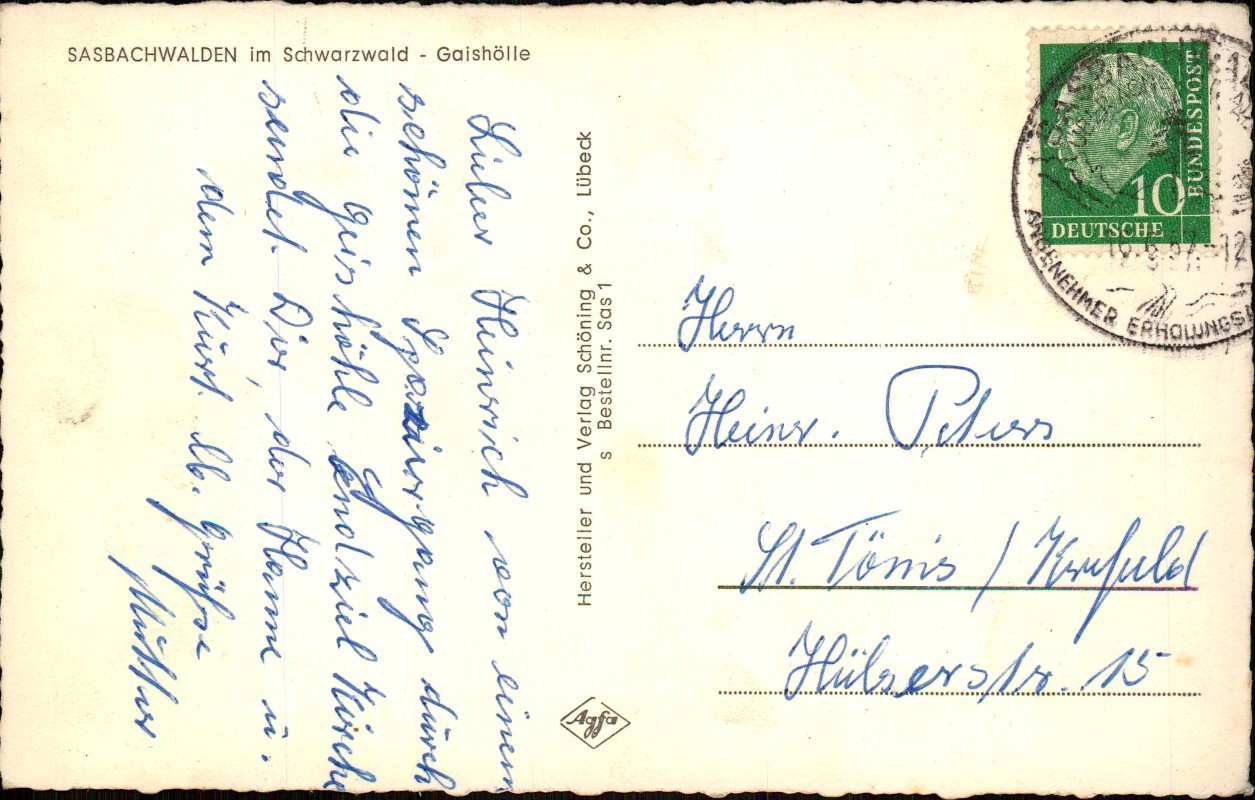 SASBACHWALDEN im Schwarzwald - Gaishölle
Lieber Heinrich von einem
schönen Spaziergang durch
die Geishöhle Endziel Kirche
sendet Dir, der Hanne u.
dem Kurt. lb. Grüße
Mutter
Hersteller und Verlag Schöning & Co., Lübeck
s Bestellnr. Sas 1
Agfa
BUNDESPOST
10
DEUTSCHE
ANGENEHMER ERHOLUNGS
Herrn
Heinr. Peters
St. Tönis / Krefeld
Hülserstr. 15